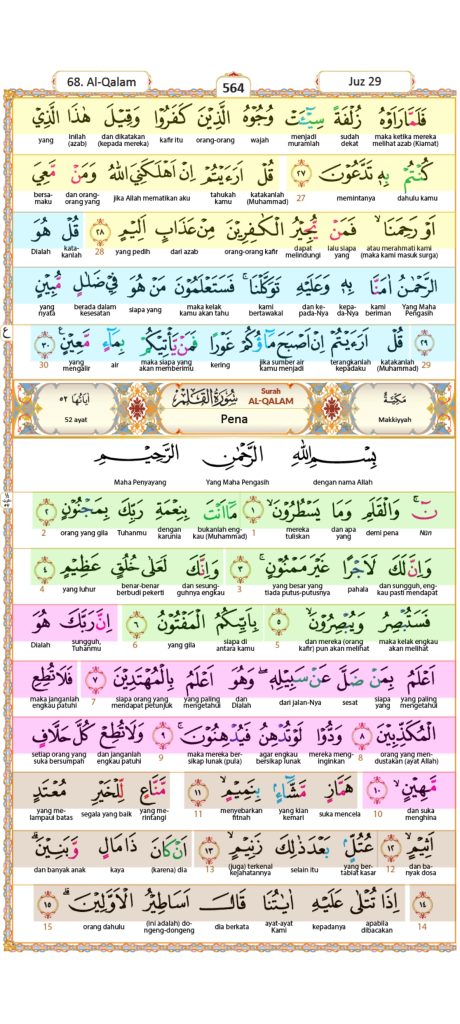 68. Al-Qalam
564
Juz 29
فَلَمَّا رَاَوْهُ زُلْفَةً سِيْۤـَٔتْ وُجُوْهُ الَّذِيْنَ كَفَرُوْا وَقِيْلَ هٰذَا الَّذِيْ
maka ketika mereka melihat azab (Kiamat) sudah dekat menjadi muramlah wajah orang-orang kafir itu dan dikatakan (kepada mereka) inilah (azab) yang
كُنْتُمْ بِهٖ تَدَّعُوْنَ ٢٧ قُلْ اَرَءَيْتُمْ اِنْ اَهْلَكَنِيَ اللّٰهُ وَمَنْ مَّعِيَ
dahulu kamu memintanya 27 katakanlah (Muhammad) tahukah kamu jika Allah mematikan aku dan orang-orang yang bersamaku
اَوْ رَحِمَنَاۙ فَمَنْ يُّجِيْرُ الْكٰفِرِيْنَ مِنْ عَذَابٍ اَلِيْمٍ ٢٨ قُلْ هُوَ
atau merahmati kami (maka kami masuk surga) lalu siapa yang dapat melindungi orang-orang kafir dari azab yang pedih 28 katakanlah Dialah
الرَّحْمٰنُ اٰمَنَّا بِهٖ وَعَلَيْهِ تَوَكَّلْنَاۚ فَسَتَعْلَمُوْنَ مَنْ هُوَ فِيْ ضَلٰلٍ مُّبِيْنٍ
Yang Maha Pengasih kami beriman kepada-Nya dan kepada-Nya kami bertawakal maka kelak kamu akan tahu siapa yang berada dalam kesesatan yang nyata
٢٩ قُلْ اَرَءَيْتُمْ اِنْ اَصْبَحَ مَاۤؤُكُمْ غَوْرًا فَمَنْ يَّأْتِيْكُمْ بِمَاۤءٍ مَّعِيْنٍ ࣖ ٣٠
29 katakanlah (Muhammad) terangkanlah kepadaku jika sumber air kamu menjadi kering maka siapa yang akan memberimu air yang mengalir 30
ع
مَكِّيَّة
Makkiyyah
سُوْرَةُ الْقَلَمِ
Surah
AL-QALAM
Pena
اٰيَاتُهَا ٥٢
52 ayat
بِسْمِ اللّٰهِ الرَّحْمٰنِ الرَّحِيْمِ
dengan nama Allah Yang Maha Pengasih Maha Penyayang
نۤ ۚ وَالْقَلَمِ وَمَا يَسْطُرُوْنَۙ ١ مَآ اَنْتَ بِنِعْمَةِ رَبِّكَ بِمَجْنُوْنٍ ٢
Nūn demi pena dan apa yang mereka tuliskan 1 bukanlah engkau (Muhammad) dengan karunia Tuhanmu orang yang gila 2
وَاِنَّ لَكَ لَاَجْرًا غَيْرَ مَمْنُوْنٍۚ ٣ وَاِنَّكَ لَعَلٰى خُلُقٍ عَظِيْمٍ ٤
dan sungguh, engkau pasti mendapat pahala yang besar yang tiada putus-putusnya 3 dan sesungguhnya engkau benar-benar berbudi pekerti yang luhur 4
فَسَتُبْصِرُ وَيُبْصِرُوْنَۙ ٥ بِاَيِّكُمُ الْمَفْتُوْنُ ٦ اِنَّ رَبَّكَ هُوَ
maka kelak engkau akan melihat dan mereka (orang kafir) pun akan melihat 5 siapa di antara kamu yang gila 6 sungguh, Tuhanmu Dialah
اَعْلَمُ بِمَنْ ضَلَّ عَنْ سَبِيْلِهٖۖ وَهُوَ اَعْلَمُ بِالْمُهْتَدِيْنَ ٧ فَلَا تُطِعِ
yang paling mengetahui siapa yang sesat dari jalan-Nya dan Dialah yang paling mengetahui siapa orang yang mendapat petunjuk 7 maka janganlah engkau patuhi
الْمُكَذِّبِيْنَ ٨ وَدُّوْا لَوْ تُدْهِنُ فَيُدْهِنُوْنَۚ ٩ وَلَا تُطِعْ كُلَّ حَلَّافٍ
orang yang mendustakan (ayat Allah) 8 mereka menginginkan agar engkau bersikap lunak maka mereka bersikap lunak (pula) 9 dan janganlah engkau patuhi setiap orang yang suka bersumpah
مَّهِيْنٍۙ ١٠ هَمَّازٍ مَّشَّاۤءٍۢ بِنَمِيْمٍۙ ١١ مَّنَّاعٍ لِّلْخَيْرِ مُعْتَدٍ
dan suka menghina 10 suka mencela yang kian kemari menyebarkan fitnah 11 yang merintangi segala yang baik yang melampaui batas
اَثِيْمٍۙ ١٢ عُتُلٍّۢ بَعْدَ ذٰلِكَ زَنِيْمٍۙ ١٣ اَنْ كَانَ ذَا مَالٍ وَّبَنِيْنَۗ
dan banyak dosa 12 yang bertabiat kasar selain itu (juga) terkenal kejahatannya 13 (karena) dia kaya dan banyak anak
١٤ اِذَا تُتْلٰى عَلَيْهِ اٰيٰتُنَا قَالَ اَسَاطِيْرُ الْاَوَّلِيْنَۗ ١٥
14 apabila dibacakan kepadanya ayat-ayat Kami dia berkata (ini adalah) dongeng-dongeng orang dahulu 15